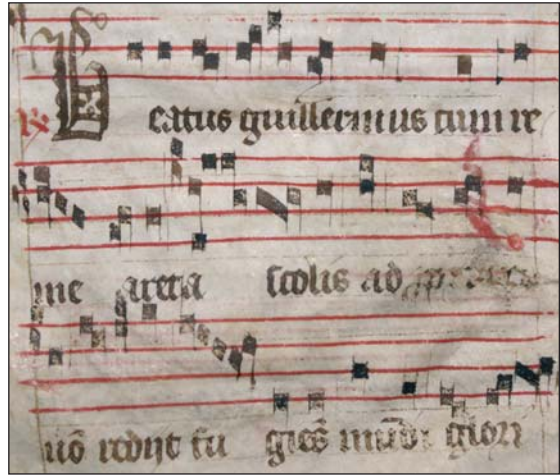 ℟ Beatus guillermus cum re
me areta scolis ad
uō redijt fu giēs mūdi glori